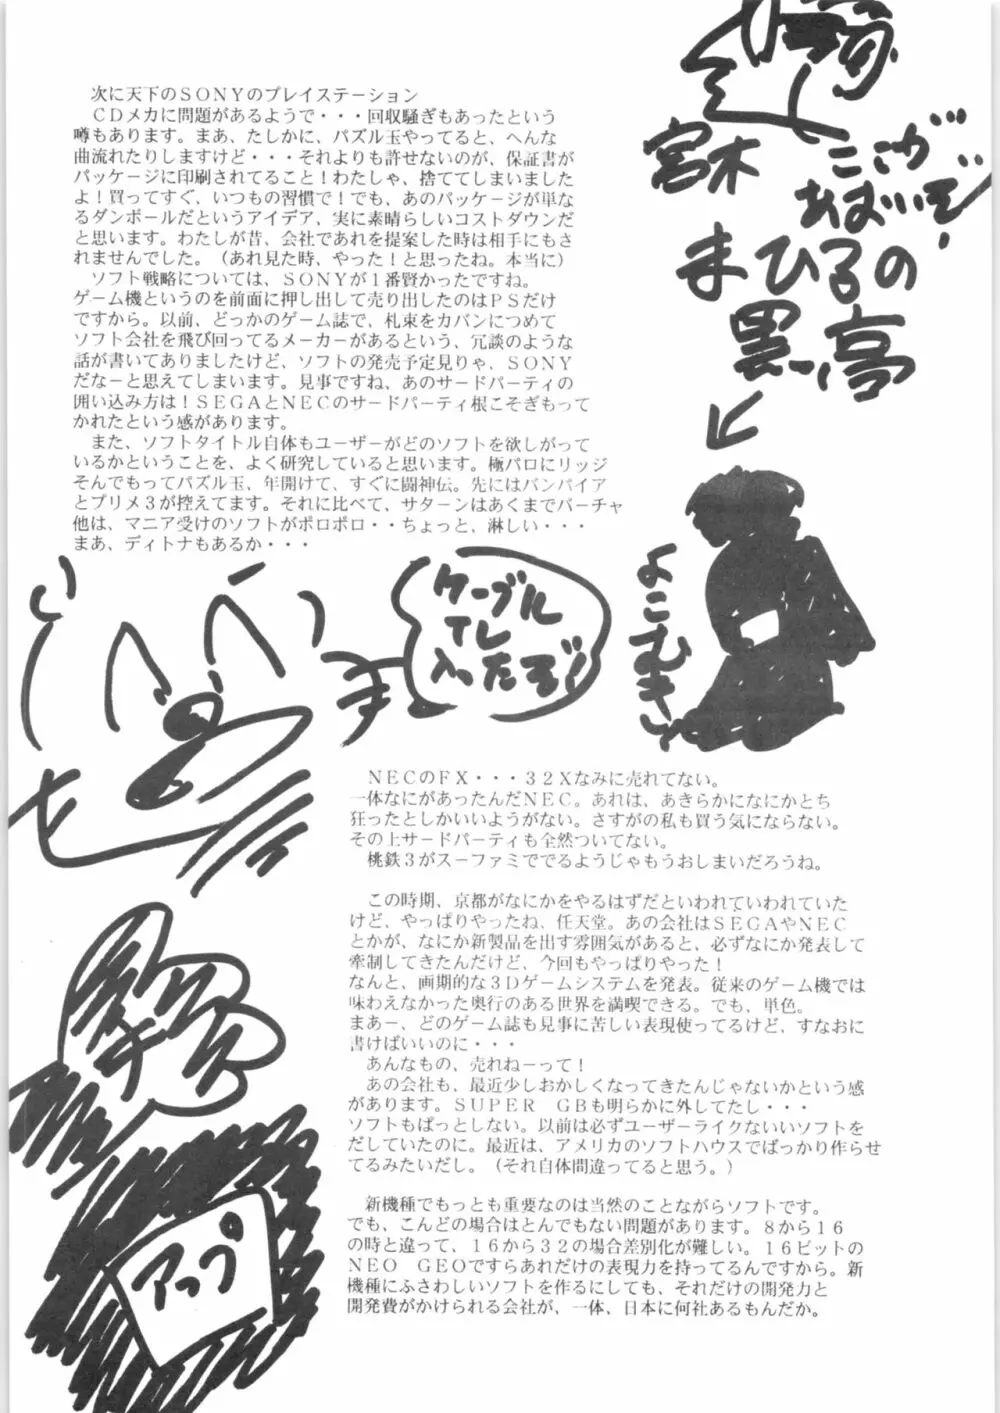 次に天下のSONYのプレイステーション
CDメカに問題があるようで・・・回収騒ぎもあったという
噂もあります。まあ、たしかに、パズル玉やってると、へんな
曲流れたりしますけど・・・それよりも許せないのが、保証書が
パッケージに印刷されてること！わたしゃ、捨ててしまいました
よ！買ってすぐ、いつもの習慣で！でも、あのパッケージが単な
るダンボールだというアイデア、実に素晴らしいコストダウンだ
と思います。わたしが昔、会社であれを提案した時は相手にもさ
れませんでした。（あれ見た時、やった！と思ったね。本当に）
ソフト戦略については、SONYが1番賢かったですね。
ゲーム機というのを前面に押し出して売り出したのはPSだけ
ですから。以前、どっかのゲーム誌で、札束をカバンにつめて
ソフト会社を飛び回ってるメーカーがあるという、冗談のような
話が書いてありましたけど、ソフトの発売予定見りゃ、SONY
だなーと思えてしまいます。見事ですね、あのサードパーティの
囲い込み方は！SEGAとNECのサードパーティ根こそぎもって
かれたという感があります。
また、ソフトタイトル自体もユーザーがどのソフトを欲しがって
いるかということを、よく研究していると思います。極パロにリッジ
そんでもってパズル玉、年開けて、すぐに闘神伝。先にはバンパイア
とプリメ3が控えてます。それに比べて、サターンはあくまでバーチャ
他は、マニア受けのソフトがポロポロ・・ちょっと、淋しい・・・
まあ、ディトナもあるか・・・
宮木
ここが
あまいぞ！
まひるの
黒い亭
よこむき
ケーブル
TV
入ったぞ！
NECのFX・・・32Xなみに売れてない。
一体なにがあったんだNEC。あれは、あきらかになにかとち
狂ったとしかいいようがない。さすがの私も買う気にならない。
その上サードパーティも全然ついてない。
桃鉄3がスーファミででるようじゃもうおしまいだろうね。
この時期、京都がなにかをやるはずだといわれていわれていた
けど、やっぱりやったね、任天堂。あの会社はSEGAやNEC
とかが、なにか新製品を出す雰囲気があると、必ずなにか発表して
牽制してきたんだけど、今回もやっぱりやった！
なんと、画期的な3Dゲームシステムを発表。従来のゲーム機では
味わえなかった奥行のある世界を満喫できる。でも、単色。
まあー、どのゲーム誌も見事に苦しい表現使ってるけど、すなおに
書けばいいのに・・・
あんなもの、売れねーって！
あの会社も、最近少しおかしくなってきたんじゃないかという感
があります。SUPER GBも明らかに外してたし・・・
ソフトもぱっとしない。以前は必ずユーザーライクないいソフトを
だしていたのに。最近は、アメリカのソフトハウスでばっかり作らせ
てるみたいだし。（それ自体間違ってると思う。）
新機種でもっとも重要なのは当然のことながらソフトです。
でも、こんどの場合はとんでもない問題があります。8から16
の時と違って、16から32の場合差別化が難しい。16ビットの
NEO GEOですらあれだけの表現力を持ってるんですから。新
機種にふさわしいソフトを作るにしても、それだけの開発力と
開発費がかけられる会社が、一体、日本に何社あるもんだか。
アップ